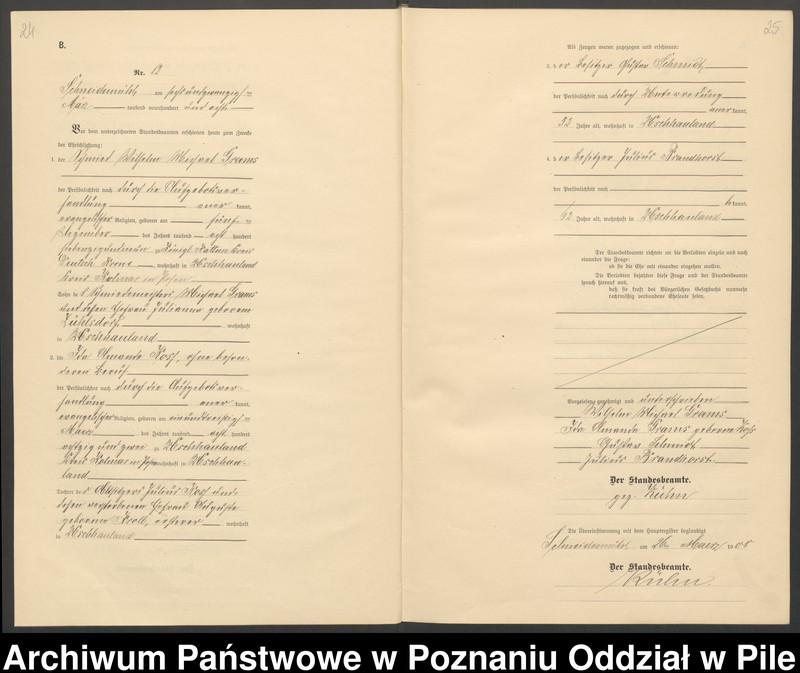 24
B.
Nr. 13
Schneidemühl, am sechsundzwanzigsten
März tausend neunhundert und acht
Vor dem unterzeichneten Standesbeamten erschienen heute zum Zwecke
der Eheschließung:
1. der Schmied Wilhelm Michael Grams
der Persönlichkeit nach durch die Aufgebotsver-
handlung anerkannt,
evangelischer Religion, geboren am
Dezember des Jahres tausend acht hundert
zu Königl Kreis
Deutsch Krone, wohnhaft in Uschhauland
Kreis Kolmar in Posen
Sohn des Schmiedemeisters Michael Grams
und dessen Ehefrau Julianna geborenen
Zühlsdorf wohnhaft
in Uschhauland
2. die Ida Amanda Koss, ohne beson-
deren Beruf
der Persönlichkeit nach durch die Aufgebotsver-
handlung anerkannt,
evangelischer Religion, geboren am einunddreißigsten
März des Jahres tausend acht hundert
achtzig und zwei zu Uschhauland
Kreis Kolmar in Posen wohnhaft in Uschhau-
land
Tochter des Altsitzers Julius Koss und
dessen verstorbenen Ehefrau
geborenen Kroll, ersterer wohnhaft
in Uschhauland
25
Als Zeugen waren zugezogen und erschienen:
3. der Besitzer Gustav Schmidt,
der Persönlichkeit nach durch Unterredung
anerkannt,
32 Jahre alt, wohnhaft in Uschhauland
4. der Besitzer Julius Brandhorst
der Persönlichkeit nach
bekannt,
62 Jahre alt, wohnhaft in Uschhauland
Der Standesbeamte richtete an die Verlobten einzeln und nach
einander die Frage:
ob sie die Ehe mit einander eingehen wollen.
Die Verlobten bejahten diese Frage und der Standesbeamte
sprach hierauf aus,
daß sie kraft des Bürgerlichen Gesetzbuchs nunmehr
rechtmäßig verbundene Eheleute seien.
Vorgelesen, genehmigt und unterschrieben
Wilhelm Michael Grams
Ida Amanda Grams geborene Koss
Gustav Schmidt
Julius Brandhorst
Der Standesbeamte.
gez. Kühn
Die Übereinstimmung mit dem Hauptregister beglaubigt
Schneidemühl, am 26. März 1908
Der Standesbeamte.
Kühn
Archiwum Państwowe w Poznaniu Oddział w Pile